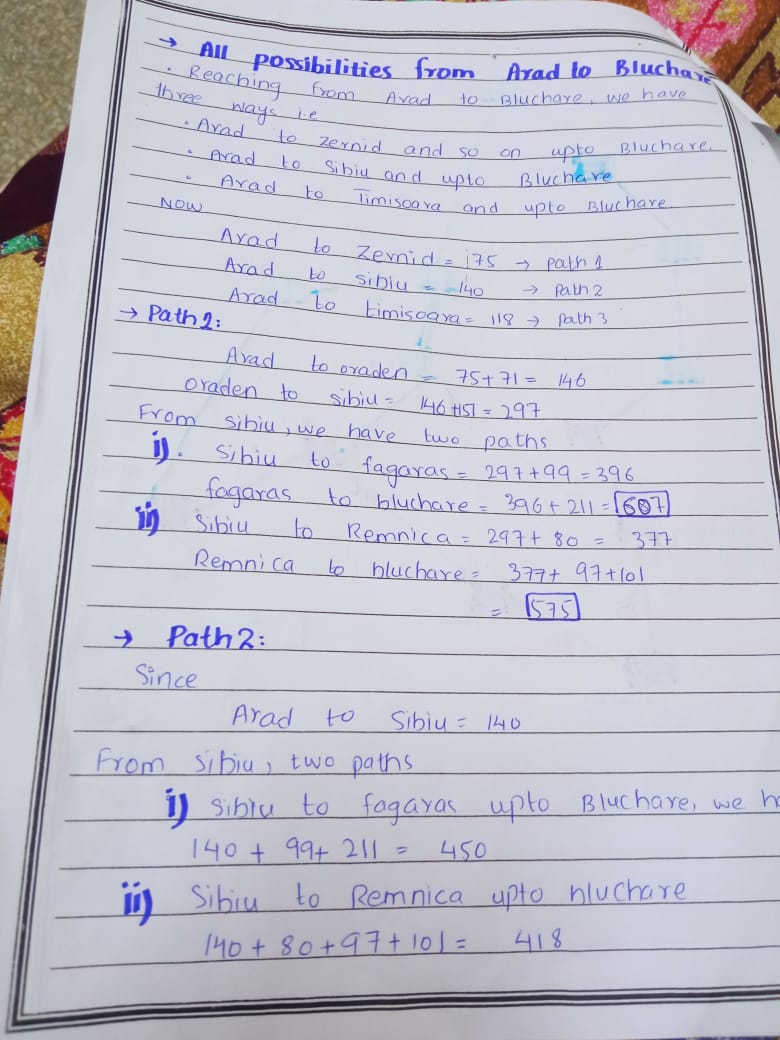 → All possibilities from Arad to Bluchare
• Reaching from Arad to Bluchare, we have
three ways i.e
• Arad to Zernid and so on upto Bluchare.
• Arad to Sibiu and upto Bluchare
• Arad to Timisoara and upto Bluchare
Now
Arad to Zernid = 75 → path 1
Arad to sibiu = 140 → Path 2
Arad to timisoara = 118 → Path 3
→ Path 1:
Arad to oraden = 75+71 = 146
oraden to sibiu = 146+151 = 297
From sibiu, we have two paths
i). Sibiu to fagaras = 297+99 = 396
fagaras to bluchare = 396+211 = 607
ii) Sibiu to Remnica = 297+ 80 = 377
Remnica to bluchare = 377+ 97+101
= 575
→ Path 2:
Since
Arad to Sibiu = 140
From sibiu, two paths
i) Sibiu to fagaras upto Bluchare, we ha
140 + 99+ 211 = 450
ii) Sibiu to Remnica upto bluchare
140 + 80+97+101 = 418